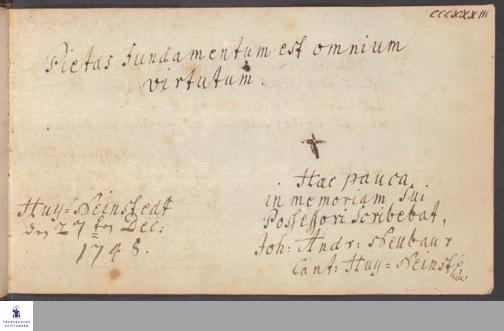 CCCXXXIII
Pietas fundamentum est omnium
virtutum.
Hæc pauca
in memoriam sui
Possessori scribebat,
Joh: Andr: Neubaur
Cant: Huy=Neinst:
Huy=Neinstedt
den 27ten Dec:
1748.
FRANCKESCHE
STIFTUNGEN